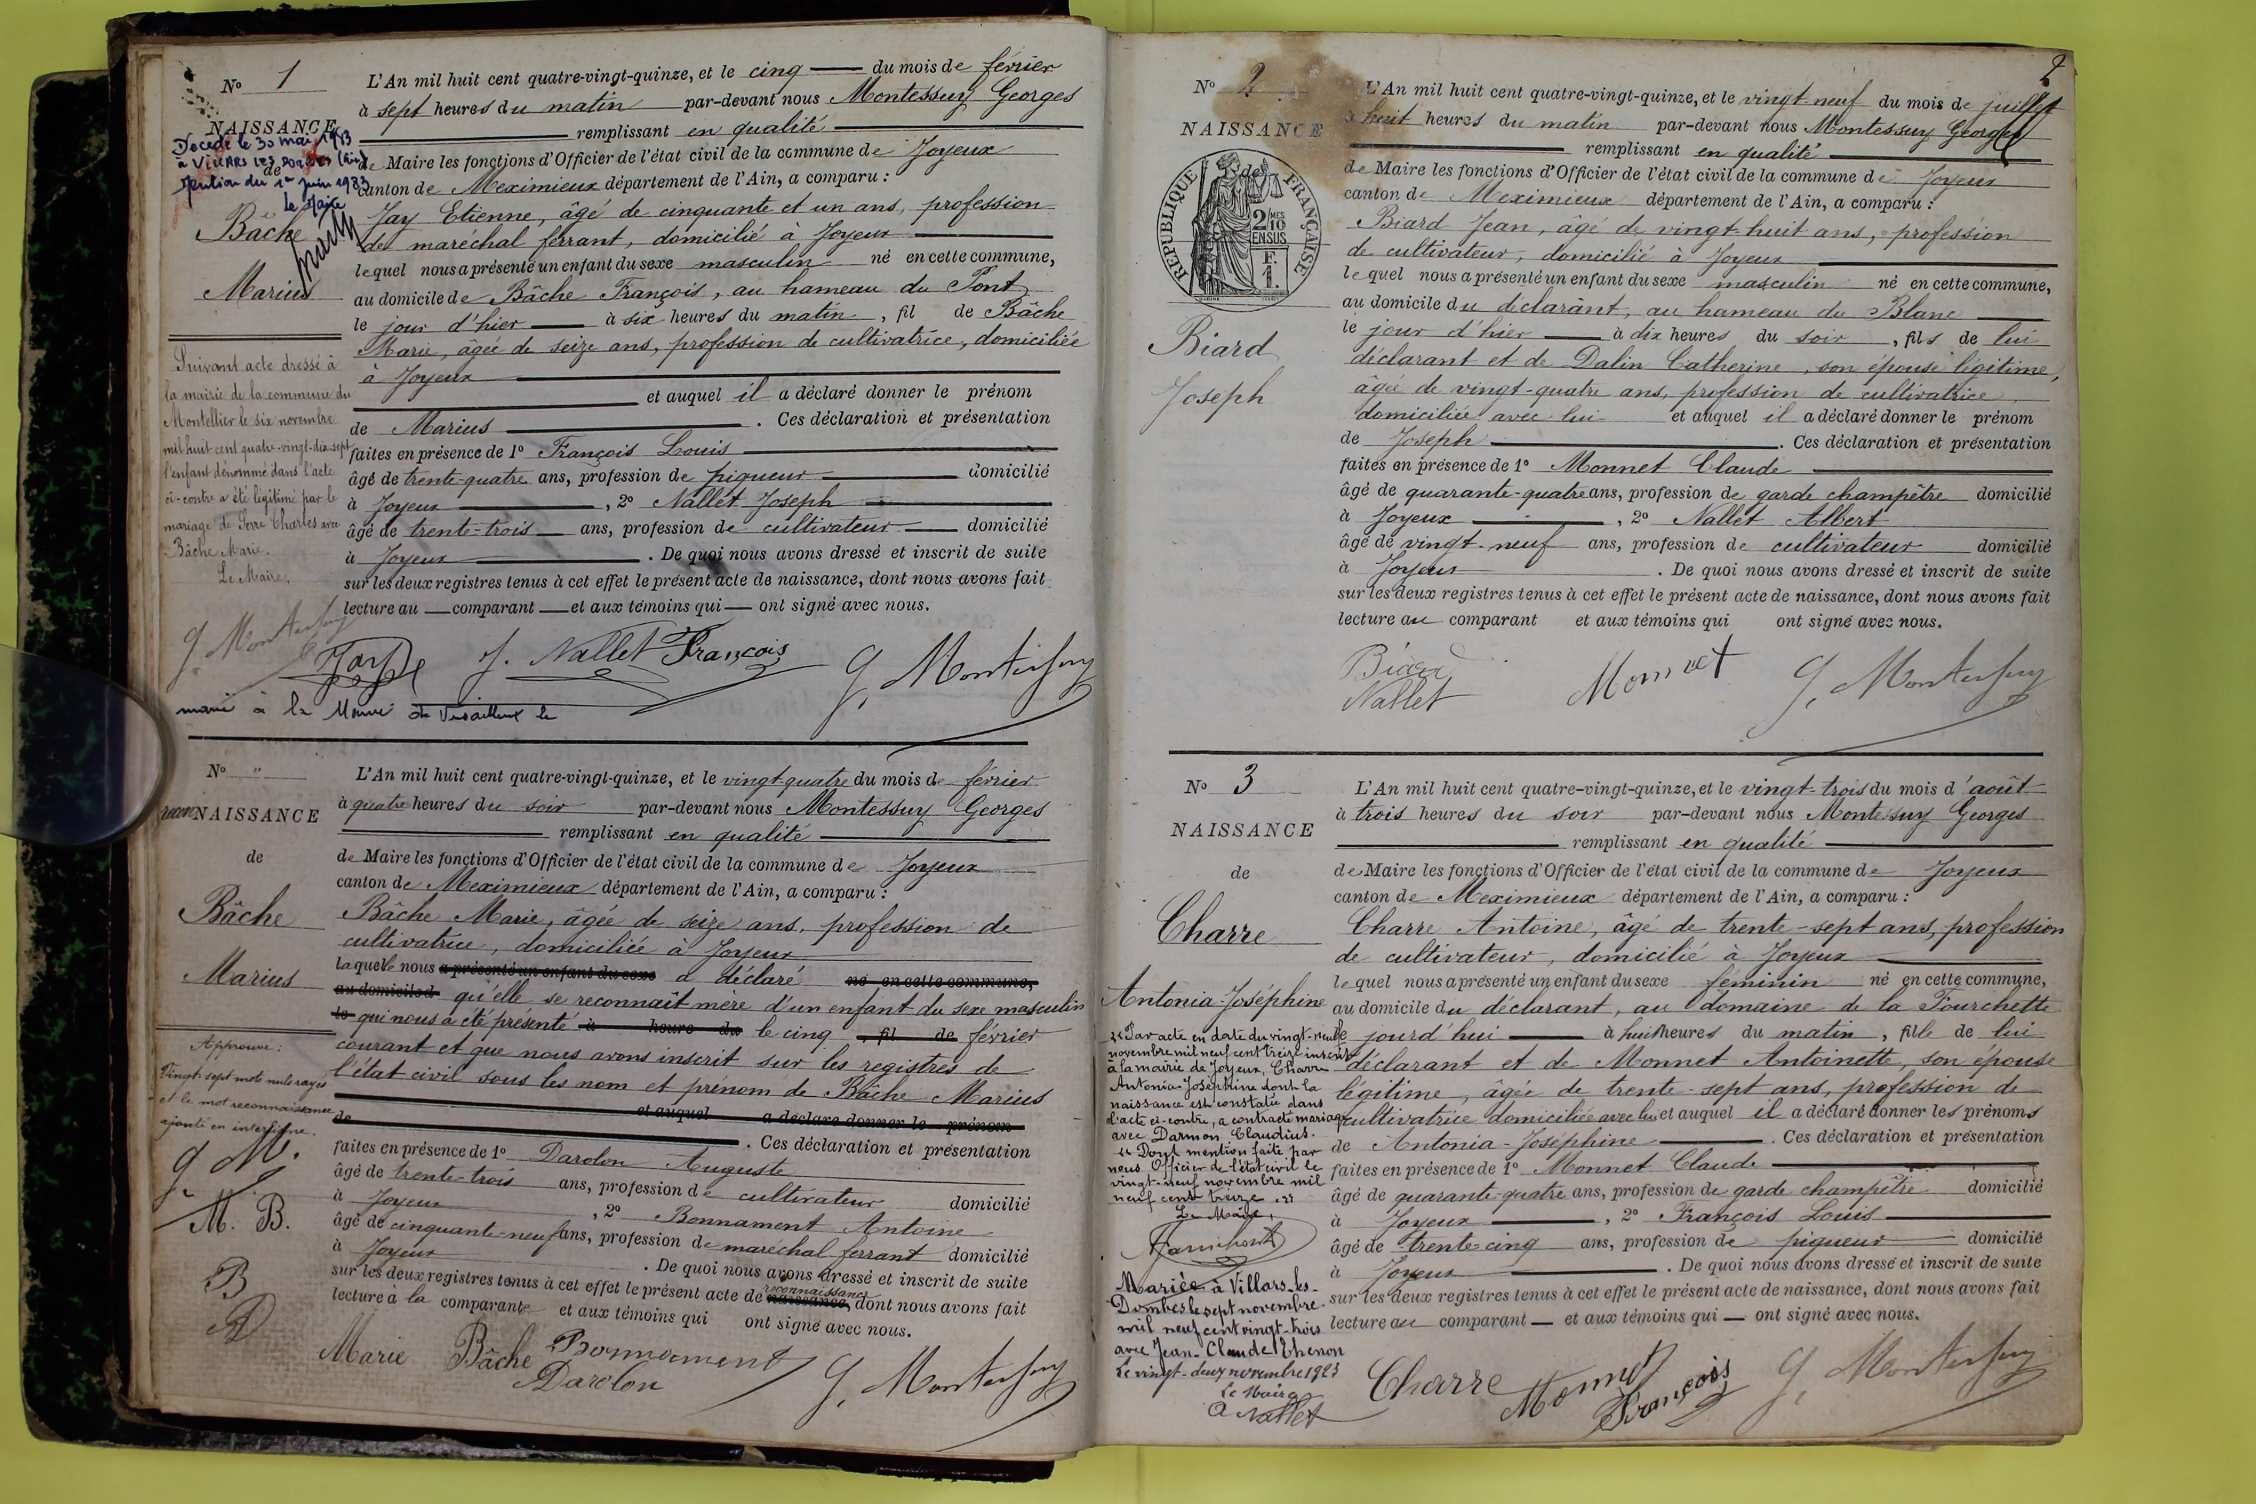 N° 1
NAISSANCE
Décédé le 30 mai 1983
à VILLARS LES DOMBES (Ain)
de
Mention du 1er Juin 1983
Le Maire
Bâche
Marius
L'An mil huit cent quatre-vingt-quinze, et le cinq du mois de février
à sept heures du matin par-devant nous Montessuy Georges
remplissant en qualité
de Maire les fonctions d'Officier de l'état civil de la commune de Joyeux
canton de Meximieux département de l'Ain, a comparu :
Jay Etienne, âgé de cinquante et un ans, profession
de maréchal ferrant, domicilié à Joyeux
lequel nous a présenté un enfant du sexe masculin né en cette commune,
au domicile de Bâche François, au hameau du Pont
le jour d'hier à six heures du matin, fil de Bâche
Marie, âgée de seize ans, profession de cultivatrice, domiciliée
à Joyeux
et auquel il a déclaré donner le prénom
de Marius . Ces déclaration et présentation
faites en présence de 1° François Louis
âgé de trente-quatre ans, profession de piqueur domicilié
à Joyeux , 2° Nallet Joseph
âgé de trente-trois ans, profession de cultivateur domicilié
à Joyeux . De quoi nous avons dressé et inscrit de suite
sur les deux registres tenus à cet effet le présent acte de naissance, dont nous avons fait
lecture au comparant et aux témoins qui ont signé avec nous.
Suivant acte dressé à
la mairie de la commune du
Montellier le six novembre
mil huit cent quatre-vingt-dix-sept
l'enfant dénommé dans l'acte
ci-contre a été légitimé par le
mariage de Serre Charles avec
Bâche Marie.
Le Maire,
G. Montessuy
Jay J. Nallet François G. Montessuy
marié à la Mairie de Versailleux le
N° "
reconNAISSANCE
de
Bâche
Marius
L'An mil huit cent quatre-vingt-quinze, et le vingt-quatre du mois de février
à quatre heures du soir par-devant nous Montessuy Georges
remplissant en qualité
de Maire les fonctions d'Officier de l'état civil de la commune de Joyeux
canton de Meximieux département de l'Ain, a comparu :
Bâche Marie, âgée de seize ans, profession de
cultivatrice, domiciliée à Joyeux
laquelle nous a présenté un enfant du sexe a déclaré né en cette commune,
au domicile d qu'elle se reconnaît mère d'un enfant du sexe masculin
le qui nous a été présenté à heure du le cinq , fil de février
courant et que nous avons inscrit sur les registres de
l'état civil sous les nom et prénom de Bâche Marius
et auquel a déclaré donner le prénom
de . Ces déclaration et présentation
faites en présence de 1° Darolon Auguste
âgé de trente-trois ans, profession de cultivateur domicilié
à Joyeux , 2° Bonnament Antoine
âgé de cinquante-neuf ans, profession de maréchal ferrant domicilié
à Joyeux . De quoi nous avons dressé et inscrit de suite
reconnaissance
sur les deux registres tenus à cet effet le présent acte de naissance, dont nous avons fait
lecture à la comparante et aux témoins qui ont signé avec nous.
Approuvé :
Vingt-sept mots nuls rayés
et le mot reconnaissance
ajouté en interligne.
G. M.
M. B.
B
AD
Marie Bâche Bonnament
Darolon G. Montessuy
2
N° 2
NAISSANCE
de
REPUBLIQUE FRANÇAISE
2/10 MES
EN SUS
F.
1.
Biard
Joseph
L'An mil huit cent quatre-vingt-quinze, et le vingt-neuf du mois de juillet
à huit heures du matin par-devant nous Montessuy Georges
remplissant en qualité
de Maire les fonctions d'Officier de l'état civil de la commune de Joyeux
canton de Meximieux département de l'Ain, a comparu :
Biard Jean, âgé de vingt-huit ans, profession
de cultivateur, domicilié à Joyeux
lequel nous a présenté un enfant du sexe masculin né en cette commune,
au domicile du déclarant, au hameau du Blanc
le jour d'hier à dix heures du soir , fils de lui
déclarant et de Dalin Catherine, son épouse légitime,
âgée de vingt-quatre ans, profession de cultivatrice,
domiciliée avec lui et auquel il a déclaré donner le prénom
de Joseph . Ces déclaration et présentation
faites en présence de 1° Monnet Claude
âgé de quarante-quatre ans, profession de garde champêtre domicilié
à Joyeux , 2° Nallet Albert
âgé de vingt-neuf ans, profession de cultivateur domicilié
à Joyeux . De quoi nous avons dressé et inscrit de suite
sur les deux registres tenus à cet effet le présent acte de naissance, dont nous avons fait
lecture au comparant et aux témoins qui ont signé avec nous.
Biard Monnet G. Montessuy
Nallet
N° 3
NAISSANCE
de
Charre
Antonia-Joséphine
L'An mil huit cent quatre-vingt-quinze, et le vingt-trois du mois d'août
à trois heures du soir par-devant nous Montessuy Georges
remplissant en qualité
de Maire les fonctions d'Officier de l'état civil de la commune de Joyeux
canton de Meximieux département de l'Ain, a comparu :
Charre Antoine, âgé de trente-sept ans, profession
de cultivateur, domicilié à Joyeux
lequel nous a présenté un enfant du sexe féminin né en cette commune,
au domicile du déclarant, au domaine de la Fourchette
le jourd'hui à huit heures du matin , fille de lui
déclarant et de Monnet Antoinette, son épouse
légitime, âgée de trente-sept ans, profession de
cultivatrice domiciliée avec lui et auquel il a déclaré donner les prénoms
de Antonia-Joséphine . Ces déclaration et présentation
faites en présence de 1° Monnet Claude
âgé de quarante-quatre ans, profession de garde champêtre domicilié
à Joyeux , 2° François Louis
âgé de trente-cinq ans, profession de piqueur domicilié
à Joyeux . De quoi nous avons dressé et inscrit de suite
sur les deux registres tenus à cet effet le présent acte de naissance, dont nous avons fait
lecture au comparant et aux témoins qui ont signé avec nous.
"Par acte en date du vingt-neuf
novembre mil neuf cent treize inscrit
à la mairie de Joyeux, Charre
Antonia-Joséphine dont la
naissance est constatée dans
l'acte ci-contre, a contracté mariage
avec Darmon Claudius.
"Dont mention faite par
nous Officier de l'état civil le
vingt-neuf novembre mil
neuf cent treize."
Le Maire,
Mariée à Villars-les-
Dombes le sept novembre
mil neuf cent vingt-trois
avec Jean-Claude Thenon
Le vingt-deux novembre 1923
Le Maire
A Nallet
Charre Monnet François G. Montessuy